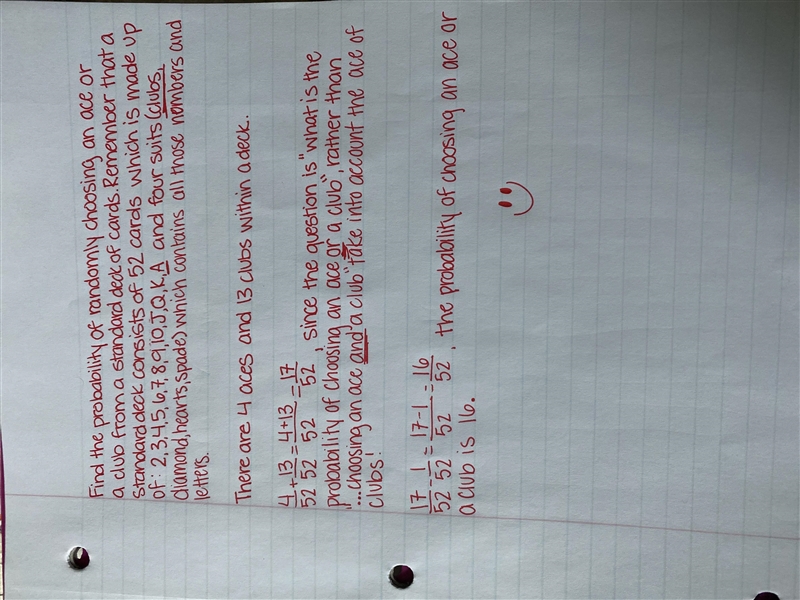 Find the probability of randomly choosing an ace or
a club from a standard deck of cards. Remember that a
standard deck consists of 52 cards which is made up
of: 2,3,4,5,6,7,8,9,10,J,Q,K,A and four suits (clubs,
diamond, hearts, spade) which contains all those numbers and
letters.
There are 4 aces and 13 clubs within a deck.
4/52 + 13/52 = 4+13/52 = 17/52, since the question is "what is the
probability of choosing an ace or a club", rather than
"...choosing an ace and a club" take into account the ace of
clubs!
17/52 - 1/52 = 17-1/52 = 16/52. the probability of choosing an ace or
a club is 16.